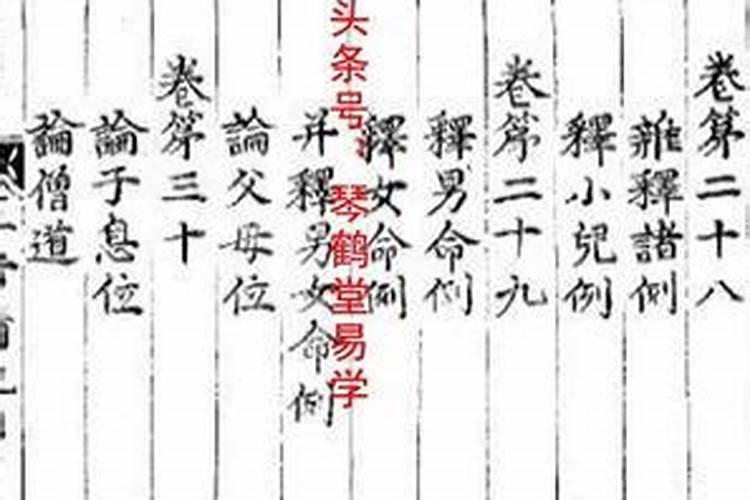 卷第二十八
雜釋諸例
釋小兒例
卷第二十九
釋男命例
釋女命例
并釋男女命例
論父母位
卷第三十
論子息位
論僧道
头条号:琴鹤堂易学